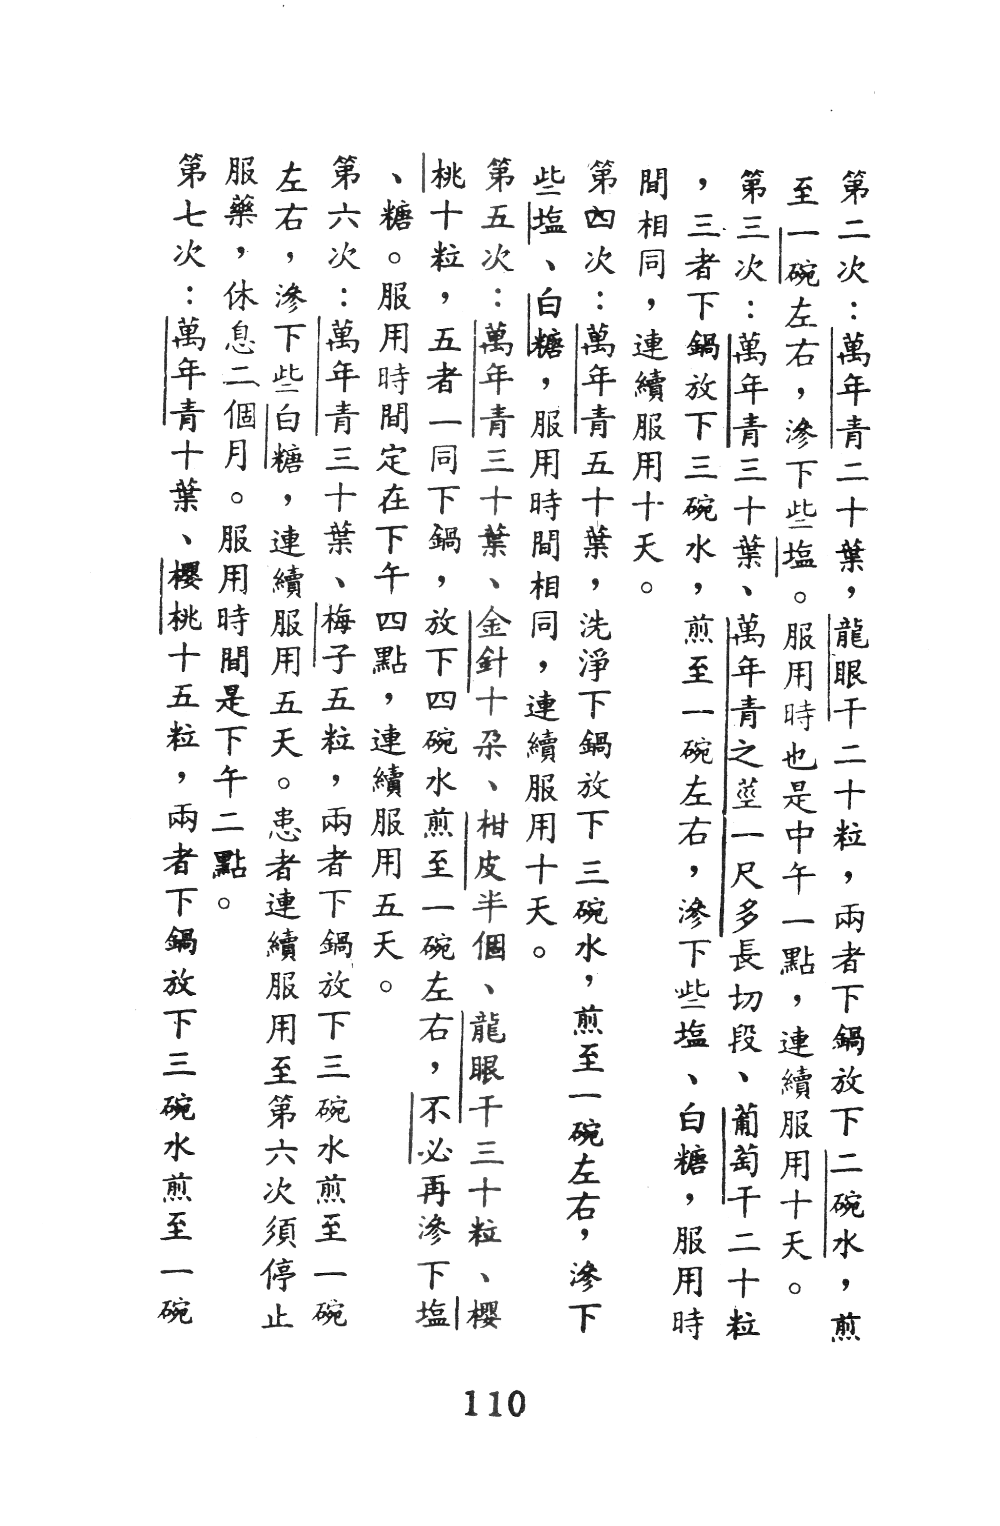 第二次：萬年青二十葉，龍眼干二十粒，兩者下鍋放下二碗水，煎
至一碗左右，滲下些塩。服用時也是中午一點，連續服用十天。
第三次：萬年青三十葉、萬年青之莖一尺多長切段、葡萄干二十粒
，三者下鍋放下三碗水，煎至一碗左右，滲下些塩、白糖，服用時
間相同，連續服用十天。
第四次：萬年青五十葉，洗淨下鍋放下三碗水，煎至一碗左右，滲下
些塩、白糖，服用時間相同，連續服用十天。
第五次：萬年青三十葉、金針十朶、柑皮半個、龍眼干三十粒、櫻
桃十粒，五者一同下鍋，放下四碗水煎至一碗左右，不必再滲下塩
、糖。服用時間定在下午四點，連續服用五天。
第六次：萬年青三十葉、梅子五粒，兩者下鍋放下三碗水煎至一碗
左右，滲下些白糖，連續服用五天。患者連續服用至第六次須停止
服藥，休息二個月。服用時間是下午二點。
第七次：萬年青十葉、櫻桃十五粒，兩者下鍋放下三碗水煎至一碗
110